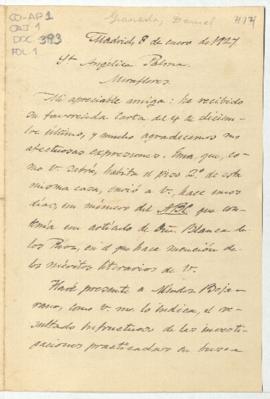 CO-AP1
CAJ 1
DOC 393
FOL 1
Granada, Daniel
Madrid, 8 de enero de 1927
Srta Angélica Palma
Miraflores
Mi apreciable amiga: he recibido
su favorecida carta del 4 de diciem-
bre último, y mucho agradecemos sus
afectuosas expresiones. Ema, que, co-
mo V. sabrá, habita el piso 2º de esta
misma casa, envió a V., hace unos
días, un número del ABC que con-
tenía un artículo de Blanca de
los Ríos, en el que hace mención de
los méritos literarios de V.
Haré presente a Méndez Beja-
rano, como V. me lo indica, el re-
sultado infructuoso de las investi-
gaciones practicadas en busca